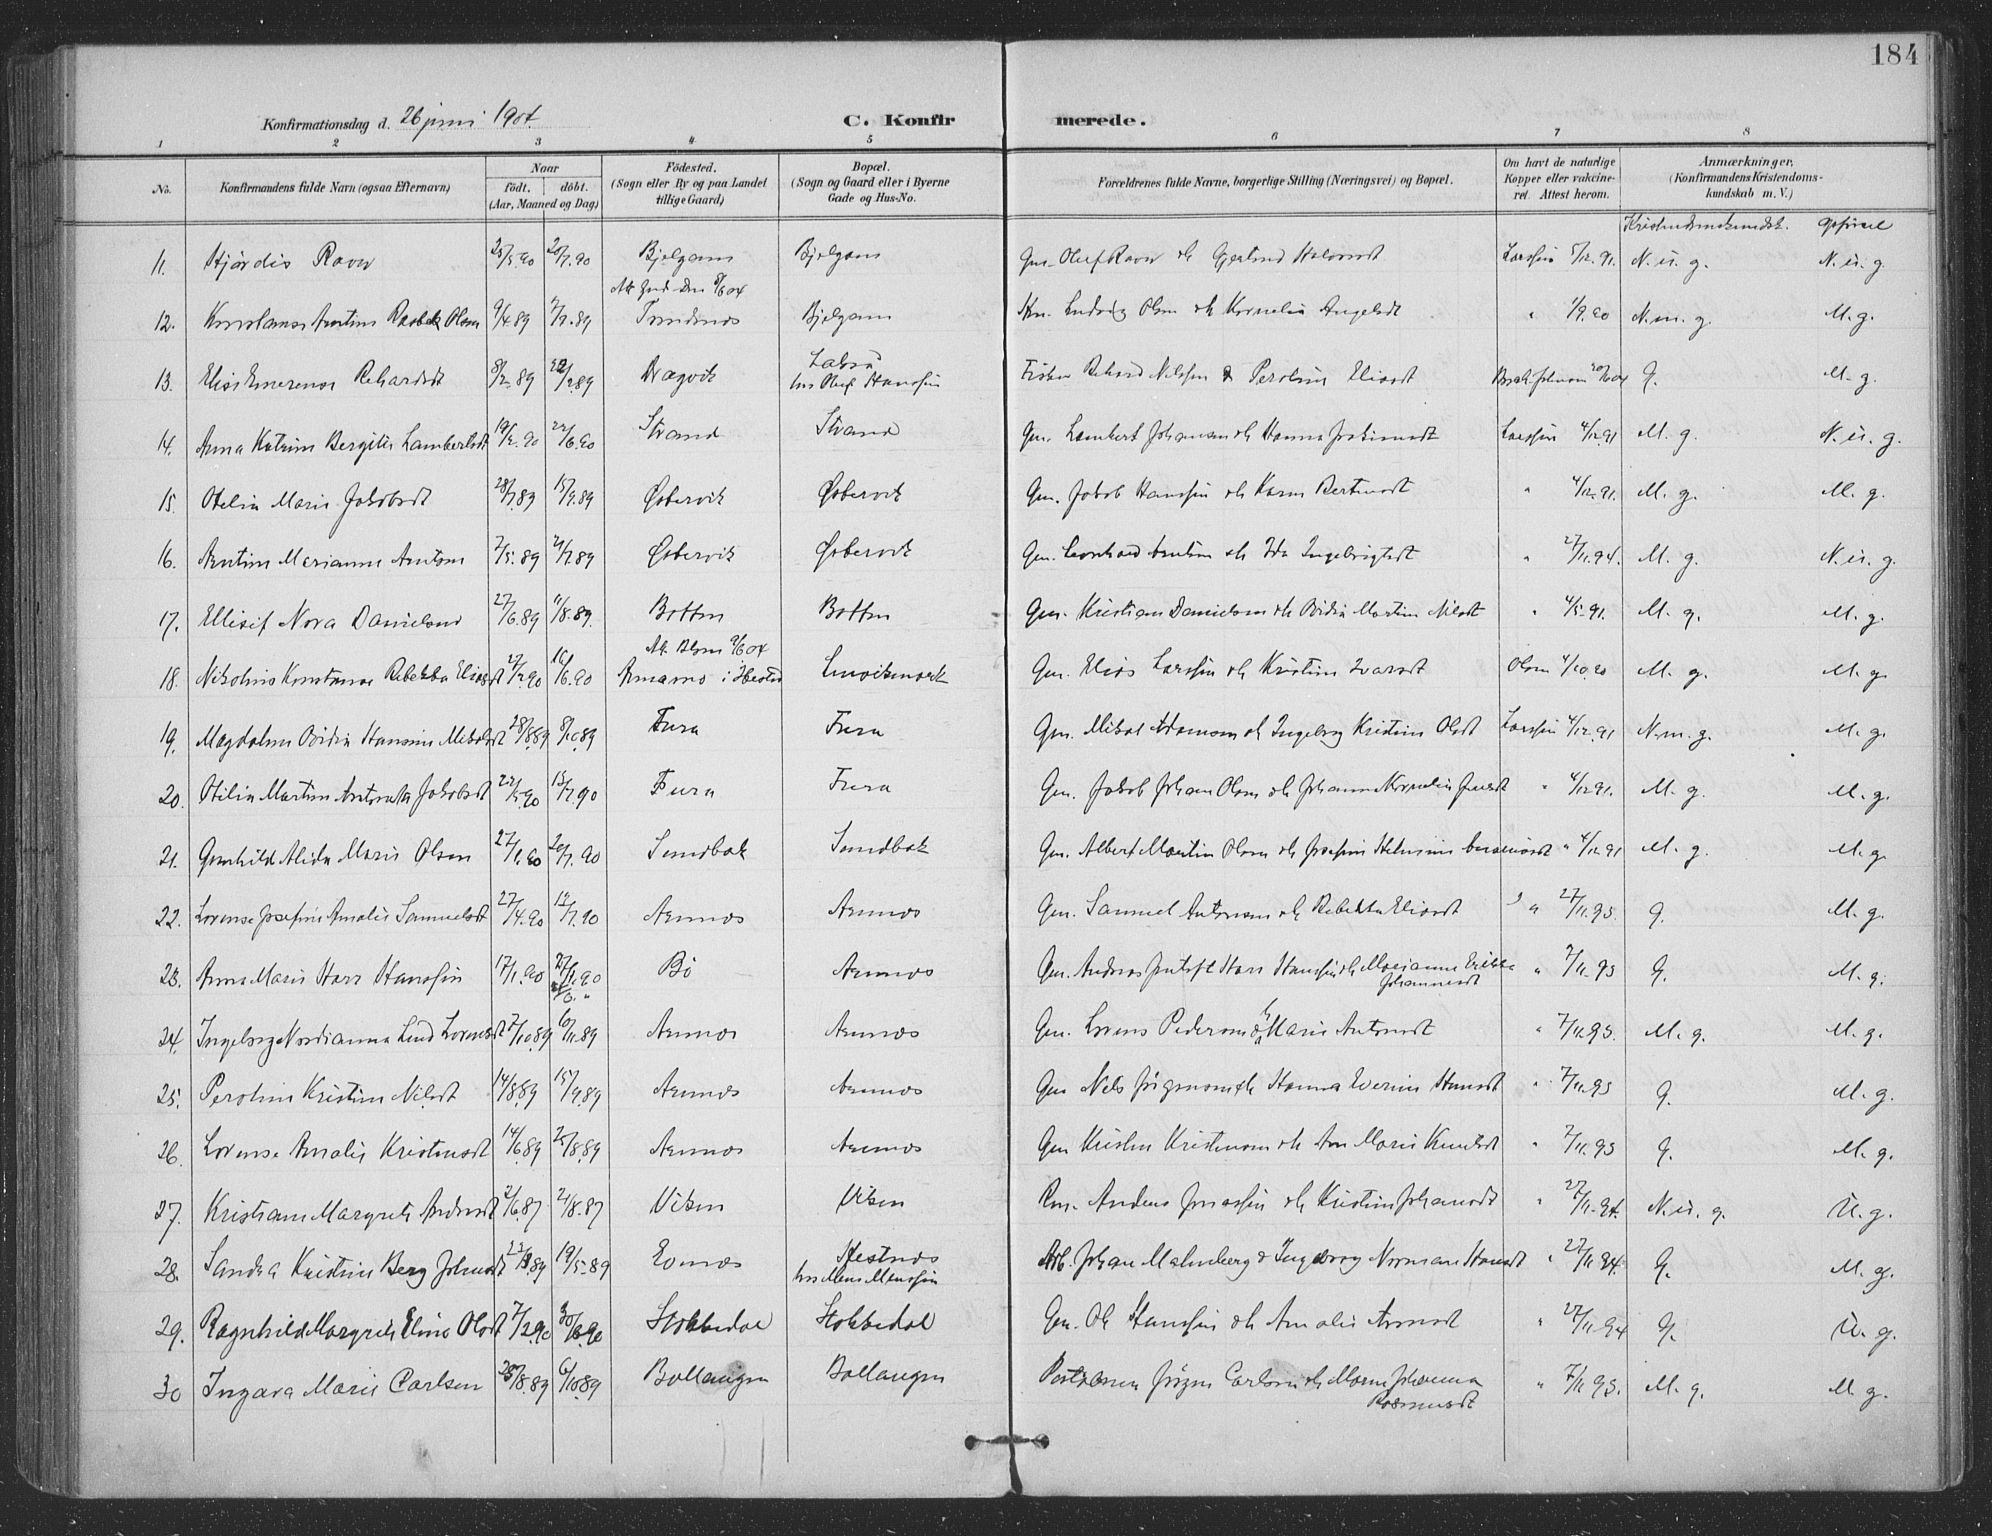 184
Konfirmationsdag d. 26 juni 1904.
C. Konfirmerede.
1 2 3 4 5 6 7 8
No. Konfirmandens fulde Navn (ogsaa Efternavn) Naar født. døbt. (Aar, Maaned og Dag) Fødested. (Sogn eller By og paa Landet tillige Gaard) Bopæl. (Sogn og Gaard eller i Byerne Gade og Hus-No. Forældrenes fulde Navne, borgerlige Stilling (Næringsvei) og Bopæl. Om havt de naturlige Kopper eller vaccineret. Attest herom. Anmærkninger. (Konfirmandens Kristendomskundskab m. V.)
Kristendomskundsk. opførsel
11. Hjørdis Ravn 25/5.90 20/7.90 Bjelgam Bjelgam Gm. Oluf Ravn og 5/12.91. N. u. g. N. u. g.
12. Olsen 9/4.89 7/7.89 Bjelgam Ludvig Olsen og Kornelia " 1/9.90 N. m. g. M. g.
13. Rikardsdt 8/2.89 22/2.89 Dragvik Fisker Rikard Nilssen & Peroline Eliasdt g. M. g.
14. Anna Katrine Bergite Lambertsdt 19/2.90 22/6.90 Strand Strand Gm. Lambert Johansen og Hanna Larssen 4/12.91 M. g. N. u. g.
15. Otelia Marie Jakobsdt 28/7.89 15/9.89 Østervik Østervik Gm. Jakob Hanssen og Karen " 4/12.91. M. g. M. g.
16. Antine Marianne Antons 7/5.89 21/7.89 Østervik Østervik Gm. Leonhard og Ida " 27/11.94. M. g. N. u. g.
17. Ellisif Nora Danielsen 27/6.89 11/8.89. Botten Botten Gm. Kristian Danielsen og Bidia Martine Nilsdt " 4/5.91. M. g. M. g.
18. Nikoline Konstanse Rebekka Eliasdt 27/2.90 16/6.90 i Ibestad Gm. Elias Larssen og Kristine Ivarsdt Olsen 4/10.90 M. g. M. g.
19. Magdalena Bidia Hansine Mikalsdt 28/8.89 8/10.89 Fura Fura Gm. Mikal Adamsen og Ingeborg Kristine Olsdt Larssen 4/12.91 N. m. g. M. g.
20. Otilia Martine Antonette Jakobsdt 22/5.90 13/7.90 Fura Fura Gm. Jakob Johan Olsen og Johanna Kornelia Jensdt " 4/12.91. M. g. M. g.
21. Gunhild Alida Marie Olsen 27/1.90 20/7.90 Sundbak Sundbak Gm. Albert Martin Olsen og Josefine " 4/12.91 M. g. M. g.
22. Lorense Josefine Amalie Samuelsdt 27/4.90 12/7.90 Arnnes Arnnes Gm. Samuel Antonsen og Rebekka Eliasdt " 27/11.95. g. M. g.
23. Anna Marie Harr Hanssen 17/1.90 Bø Arnnes Gm. Andreas Harr Hanssen og Marianne Erikke Johannesdt " 7/11.93 g. M. g.
24. Ingeborg Nordianna Lind Lorensdt 7/10.89 10/11.89 Arnnes Arnnes Gm. Lorens Pedersen & Marie Antonsdt " 7/11.93. M. g. M. g.
25. Peroline Kristine Nilsdt 14/8.89 15/9.89 Arnnes Arnnes Gm Nils Jørgensen og Hanna Everine Hansdt " 7/11.93 g. M. g.
26. Lorense Amalie Kristensdt 14/6.89 25/8.89 Arnnes Arnnes Gm Kristen Kristensen og Ane Marie Knudsdt " 7/11.93 g. M. g.
27. Kristiane Margrete Andersdt 2/6.87 21/8.87 Viken Viken Anders Jonassen og Kristine Johansdt " 27/11.94. N. u. g. U. g.
28. Sandra Kristine Berg Johansdt 19/5.89 Evenes Hestnes hos Mons Monssen Arb. Johan Malmberg & Ingeborg Normane Hansdt " 27/11.94. g. M. g.
29. Ragnhild Margrete Eline Olsdt 7/2.90 30/3.90 Stokkedal Stokkedal Gm. Ole Hanssen og Amalie " 27/11.94 g. U. g.
30 Ingara Marie Carlsen 25/8.89 6/10.89 Ballangen Ballangen Jørgen Carlsen og Maren Johanna Rasmusdt " 7/11.93. M. g. M. g.